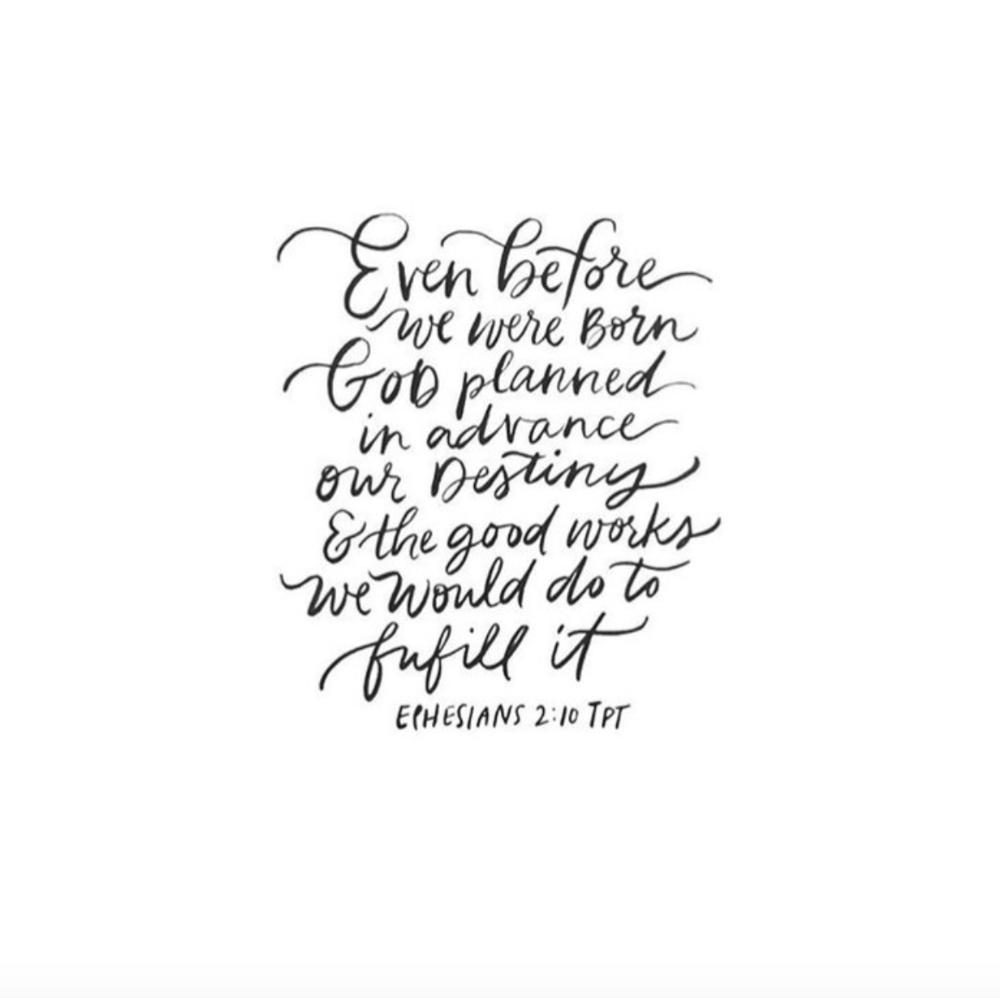 Even before
we were Born
God planned
in advance
our Destiny
& the good works
we would do to
fufill it
EPHESIANS 2:10 TPT